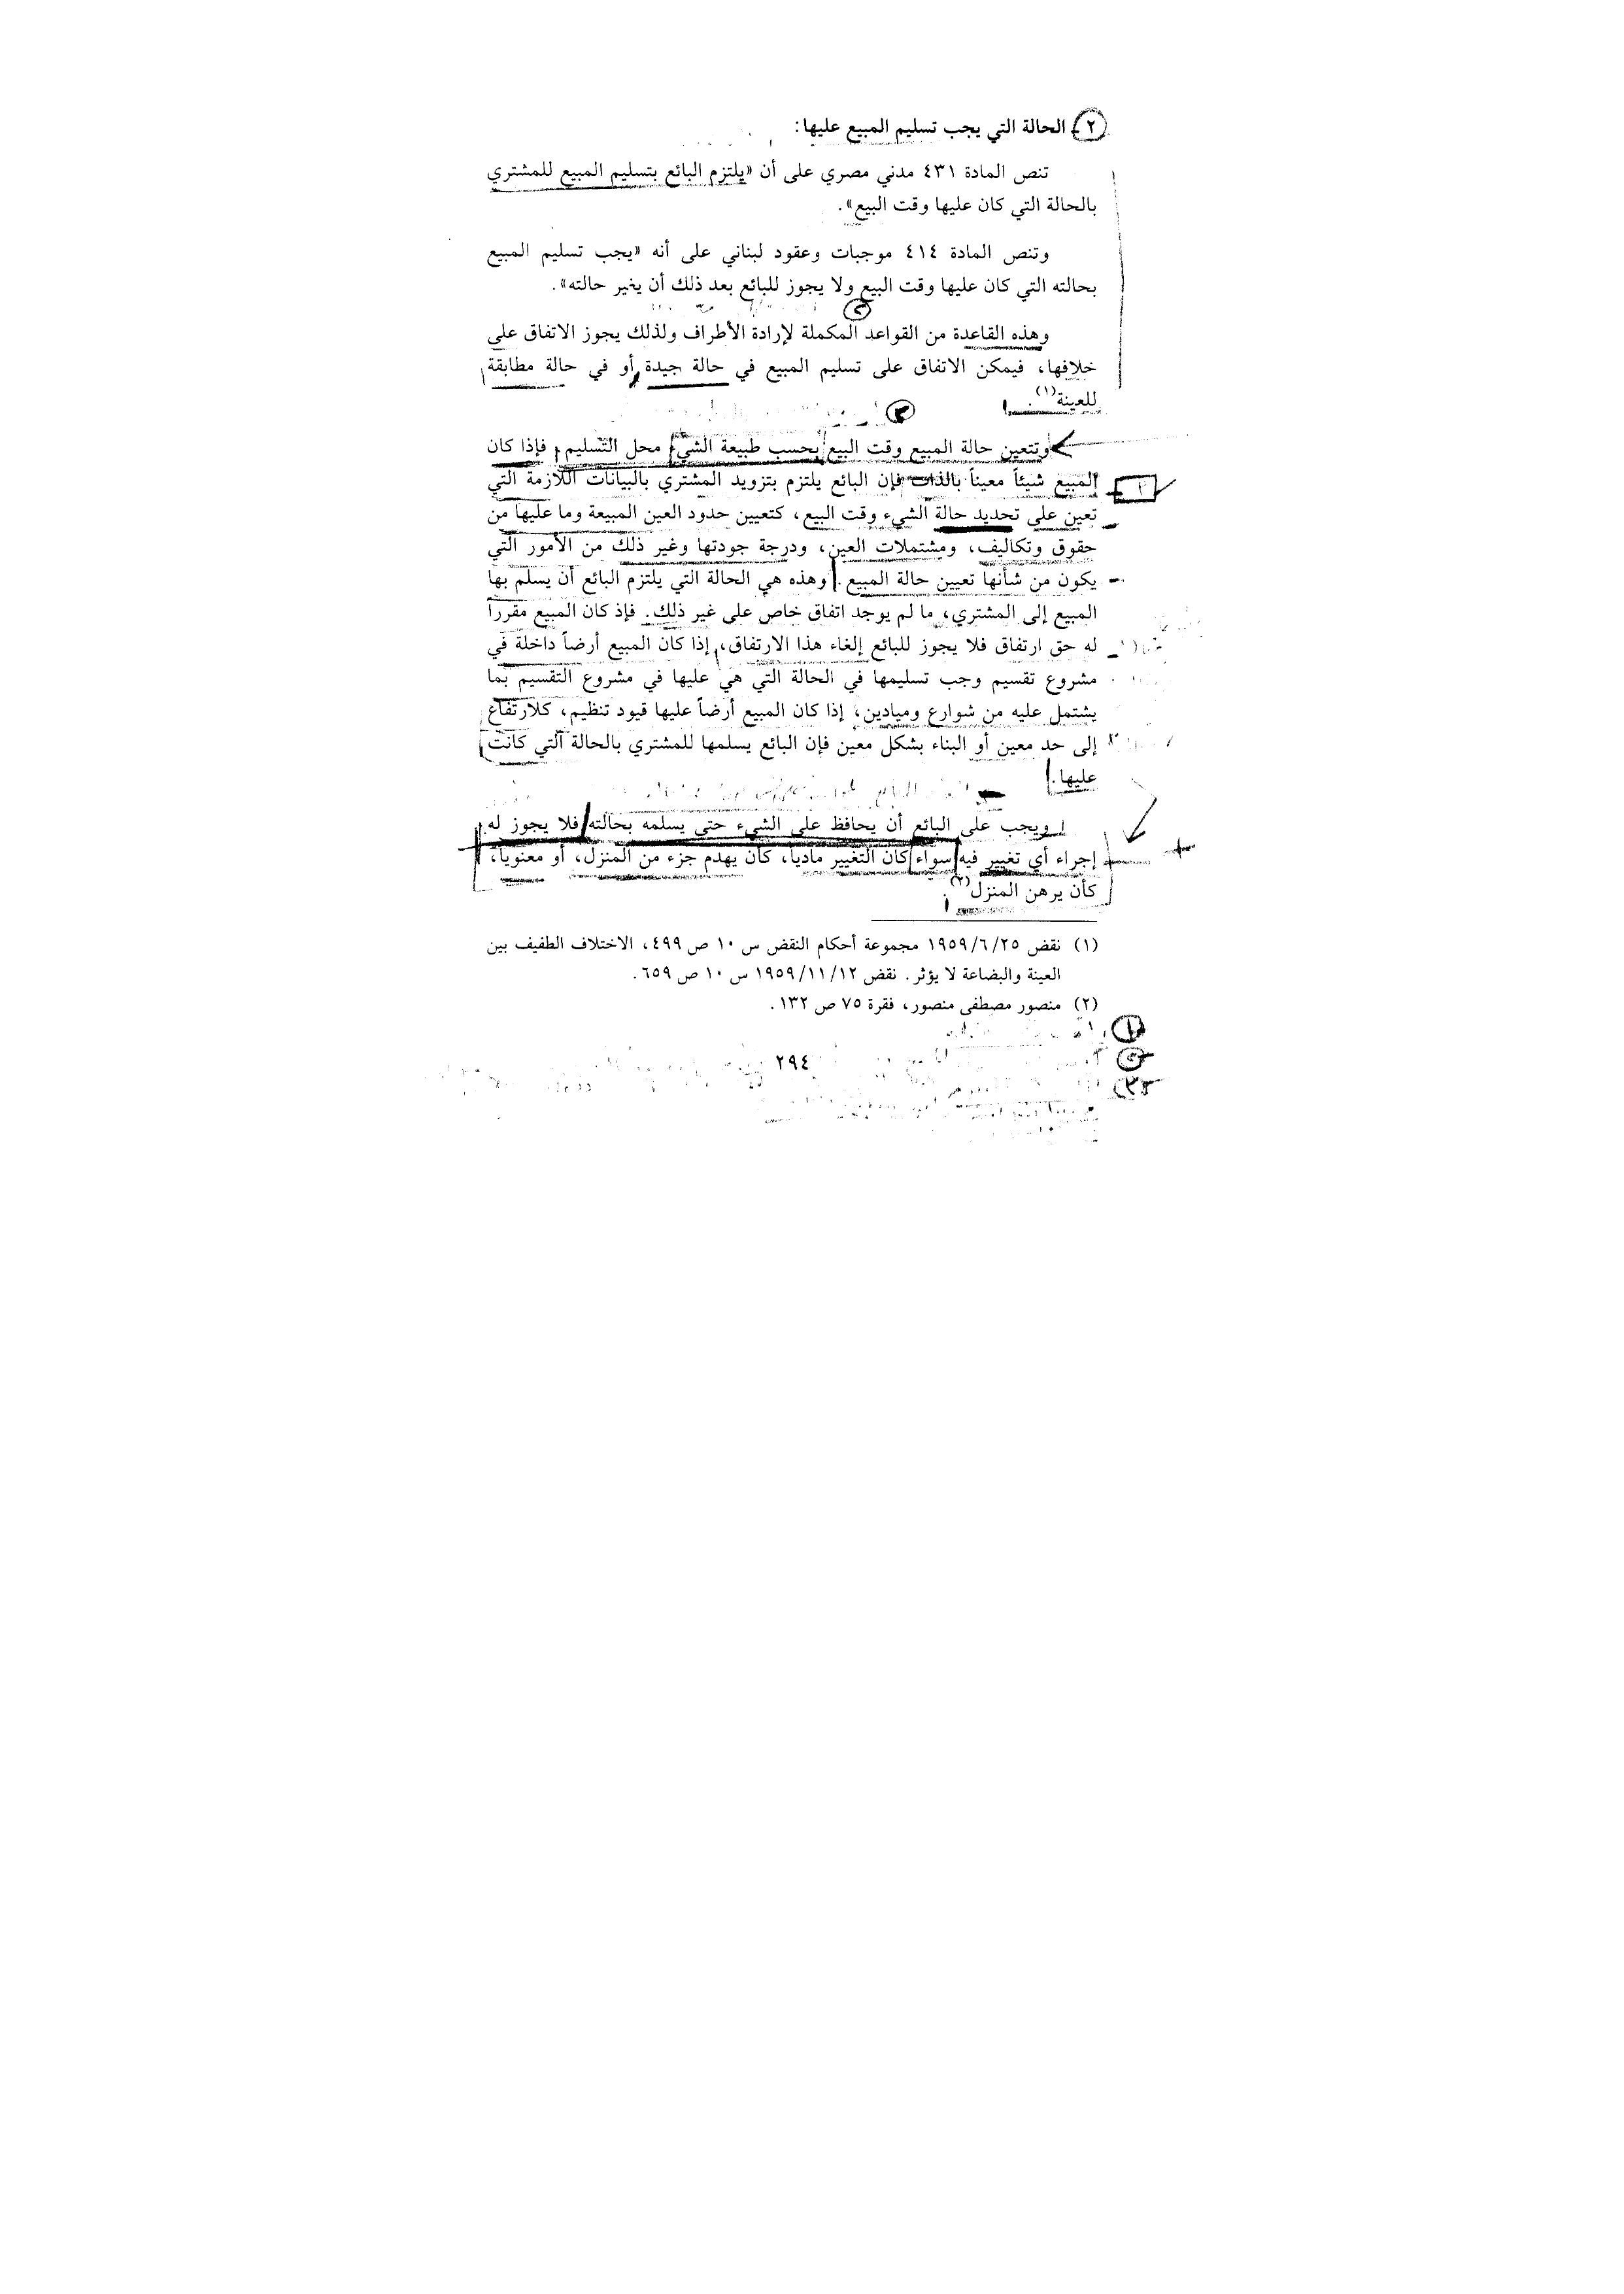 ٢ - الحالة التي يجب تسليم المبيع عليها:
تنص المادة ٤٣١ مدني مصري على أن «يلتزم البائع بتسليم المبيع للمشتري
بالحالة التي كان عليها وقت البيع».
وتنص المادة ٤١٤ موجبات وعقود لبناني على أنه «يجب تسليم المبيع
بحالته التي كان عليها وقت البيع ولا يجوز للبائع بعد ذلك أن يغير حالته».
وهذه القاعدة من القواعد المكملة لإرادة الأطراف ولذلك يجوز الاتفاق على
خلافها، فيمكن الاتفاق على تسليم المبيع في حالة جيدة أو في حالة مطابقة
للعينة(١).
وتتعين حالة المبيع وقت البيع بحسب طبيعة الشيء محل التسليم، فإذا كان
المبيع شيئاً معيناً بالذات فإن البائع يلتزم بتزويد المشتري بالبيانات اللازمة التي
تعين على تحديد حالة الشيء وقت البيع، كتعيين حدود العين المبيعة وما عليها من
حقوق وتكاليف، ومشتملات العين، ودرجة جودتها وغير ذلك من الأمور التي
يكون من شأنها تعيين حالة المبيع. وهذه هي الحالة التي يلتزم البائع أن يسلم بها
المبيع إلى المشتري، ما لم يوجد اتفاق خاص على غير ذلك. فإذ كان المبيع مقرراً
له حق ارتفاق فلا يجوز للبائع إلغاء هذا الارتفاق، إذا كان المبيع أرضاً داخلة في
مشروع تقسيم وجب تسليمها في الحالة التي هي عليها في مشروع التقسيم بما
يشتمل عليه من شوارع وميادين، إذا كان المبيع أرضاً عليها قيود تنظيم، كلارتفاع
إلى حد معين أو البناء بشكل معين فإن البائع يسلمها للمشتري بالحالة التي كانت
عليها.
ويجب على البائع أن يحافظ على الشيء حتى يسلمه بحالته فلا يجوز له
إجراء أي تغيير فيه سواء كان التغيير مادياً، كأن يهدم جزء من المنزل، أو معنوياً،
كأن يرهن المنزل(٢).
(١) نقض ١٩٥٩/٦/٢٥ مجموعة أحكام النقض س ١٠ ص ٤٩٩، الاختلاف الطفيف بين
العينة والبضاعة لا يؤثر. نقض ١٩٥٩/١١/١٢ س ١٠ ص ٦٥٩.
(٢) منصور مصطفى منصور، فقرة ٧٥ ص ١٣٢.
٢٩٤